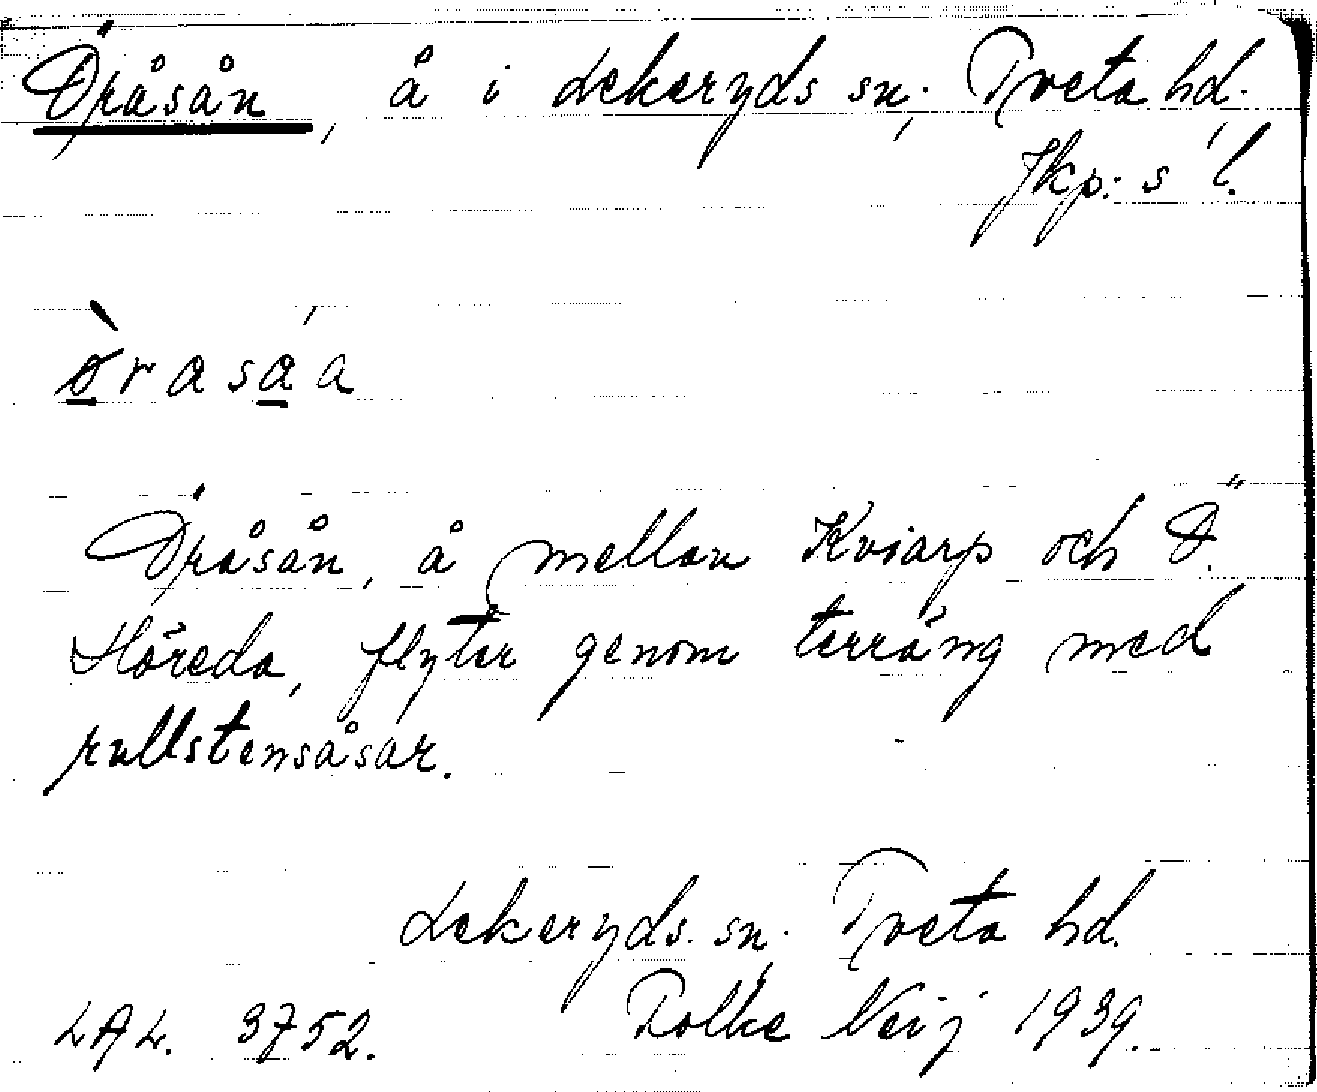 Öråsån, å i Lekeryds sn, Tveta hd.
Jkp:s l.
òrasáa
Öråsån, å mellan Kviarp och Ö.
Höreda, flyter genom terräng med
rullstensåsar.
Lekeryds sn. Tveta hd.
LAL. 3752. Tolke Neij 1939.